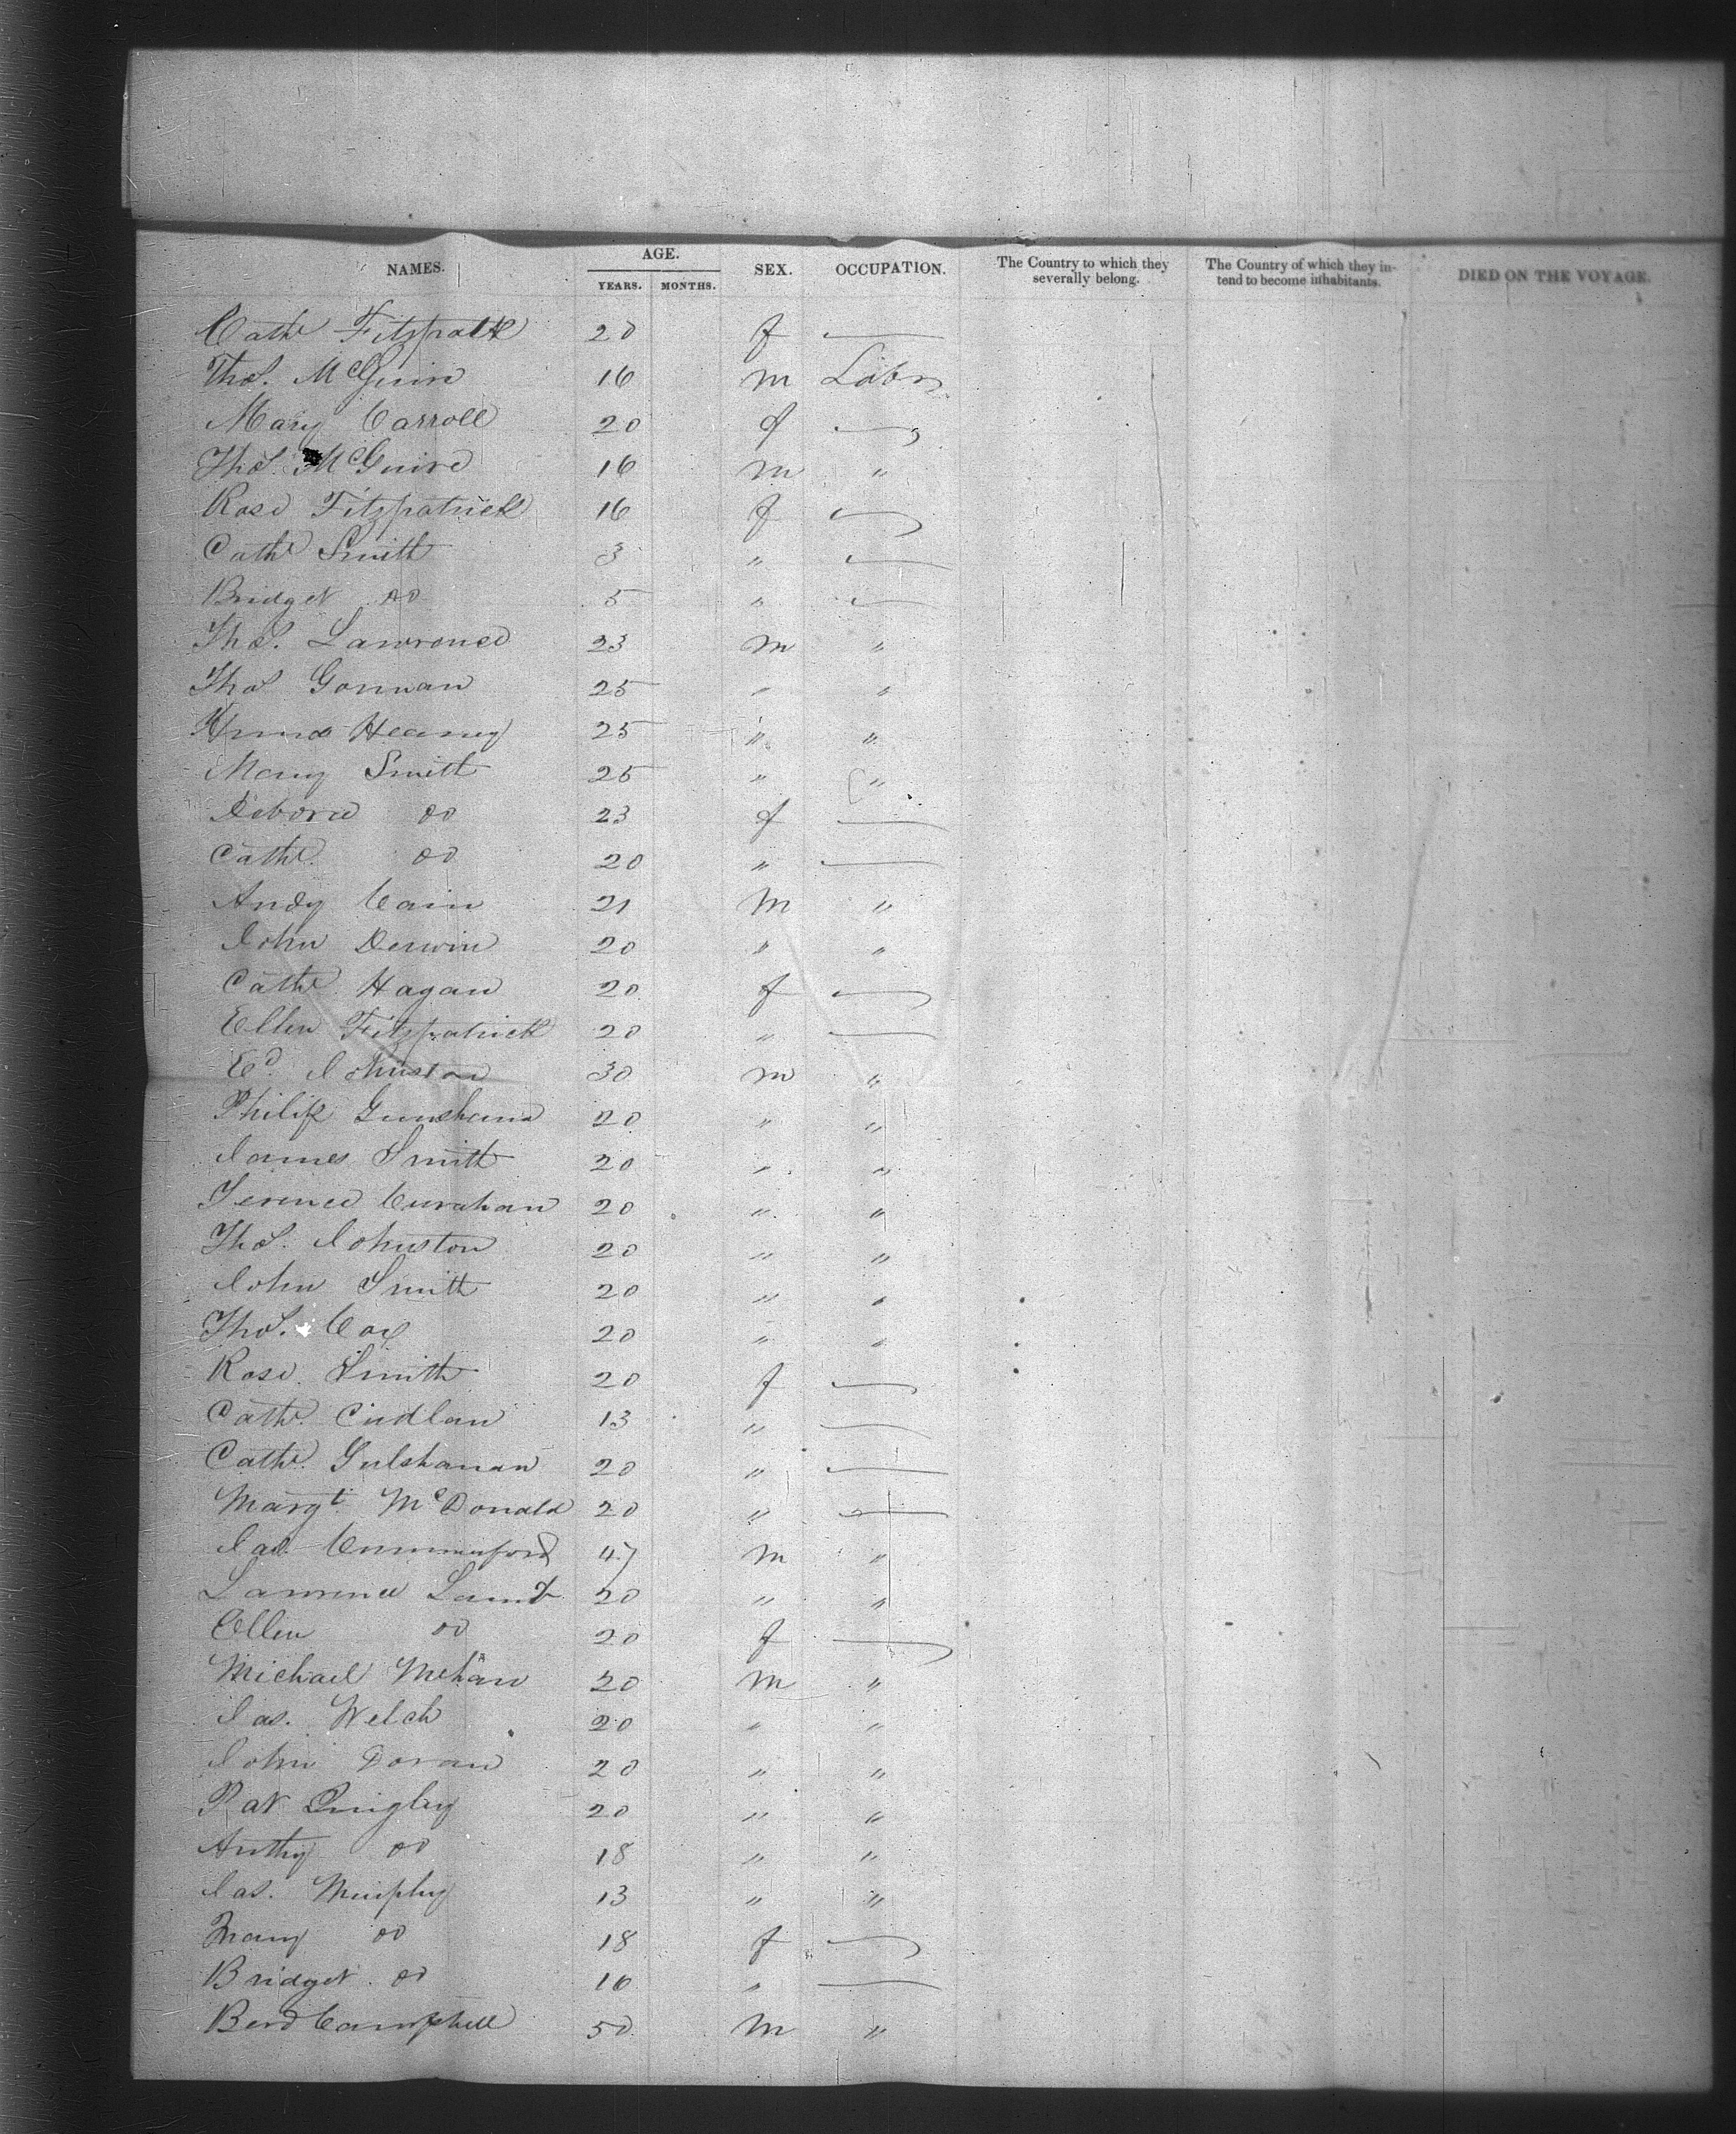 NAMES. AGE. YEARS. MONTHS. SEX. OCCUPATION. The Country to which they severally belong. The Country of which they intend to become inhabitants. DIED ON THE VOYAGE.
Cathe Fitzpatk 20 f —
Thos. McGuire 16 m Labr
Mary Carroll 20 f —
Thos. McGuire 16 m "
Rose Fitzpatrick 16 f —
Cathe Smith 3 " —
Bridget do 5 " —
Thos. Lawrence 23 m "
Thos Gorman 25 " "
Heaney 25 " "
Mary Smith 25 " "
Debora do 23 f —
Cathe. do 20 " —
Andy Cain 21 m "
John Derwin 20 " "
Cathe Hagan 20 f —
Ellen Fitzpatrick 20 " —
Ed. Johnston 30 m "
Philip 20 " "
James Smith 20 " "
Terence 20 " "
Thos. Johnston 20 " "
John Smith 20 " "
Thos. Cox 20 " "
Rose Smith 20 f —
Cathe. 13 " —
Cathe. 20 " —
Margt. McDonald 20 " —
Jas. 47 m "
Lawrence Lamb 20 " "
Ellen do 20 f —
Michael Mehan 20 m "
Jas. Welch 20 " "
John Doran 20 " "
Pat Quigley 20 " "
Anthy do 18 " "
Jas. Murphy 13 " "
Mary do 18 f —
Bridget do 16 " —
Bend Campbell 50 m "